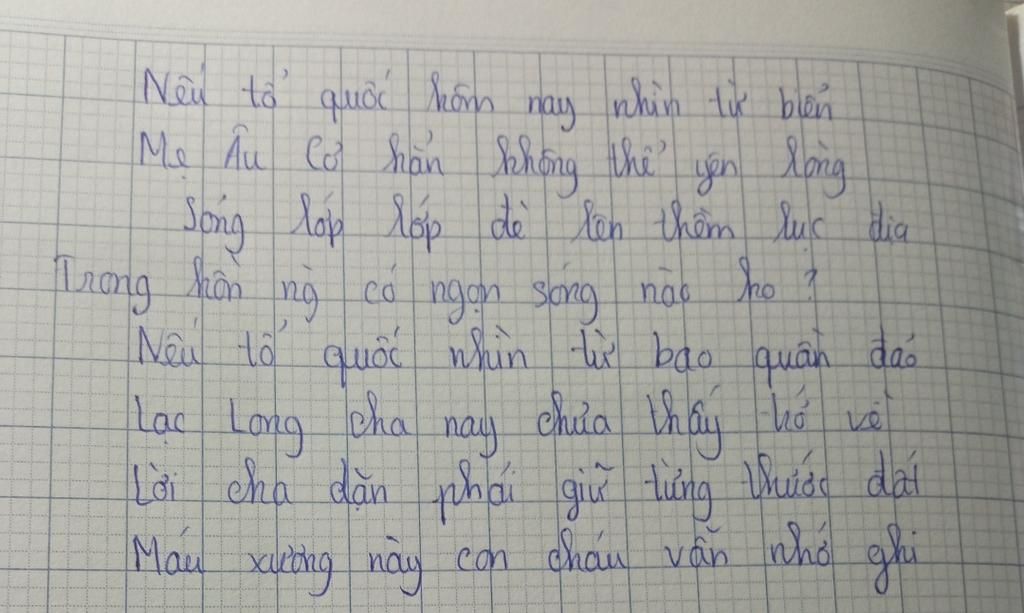 Nếu tổ quốc hôm nay nhìn từ biển
Mẹ Âu Cơ hẳn không thể yên lòng
Sóng lớp lớp đè lên thềm lục địa
Trong hồn ng có ngọn sóng nào ko?
Nếu tổ quốc nhìn từ bao quần đảo
Lạc Long cha nay chưa thấy trở về
Lời cha dặn phải giữ từng thước đất
Máu xương này con cháu vẫn nhớ ghi